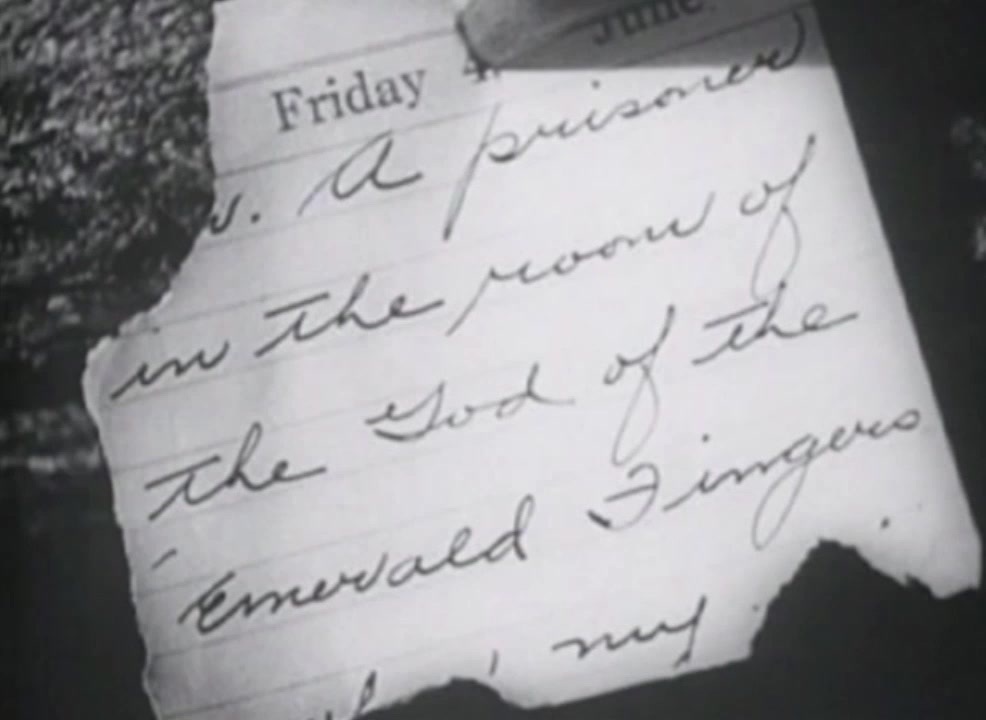 June
Friday 4.
. A prisoner
in the room of
the God of the
Emerald Fingers
my